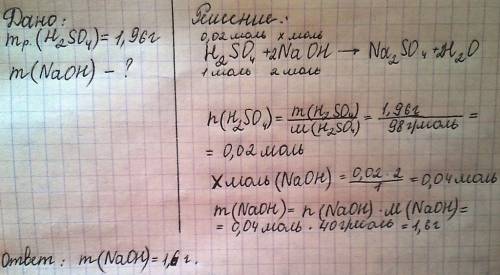 Дано:
m р.(H₂SO₄) = 1,96г
m(NaOH) – ?
Решение:
0,02 моль x моль
H₂SO₄ + 2NaOH → Na₂SO₄ + 2H₂O
1 моль 2 моль
n(H₂SO₄) = m(H₂SO₄)/M(H₂SO₄) = 1,96г/98 г/моль =
= 0,02 моль
X моль (NaOH) = 0,02 · 2/1 = 0,04 моль
m(NaOH) = n(NaOH) · M(NaOH) =
= 0,04 моль · 40 г/моль = 1,6г
Ответ: m(NaOH) = 1,6г.